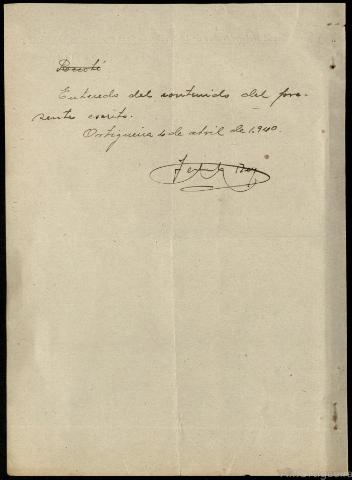 Recibí
Enterado del contenido del pre-
sente escrito.
Ortigueira 4 de abril de 1.940.